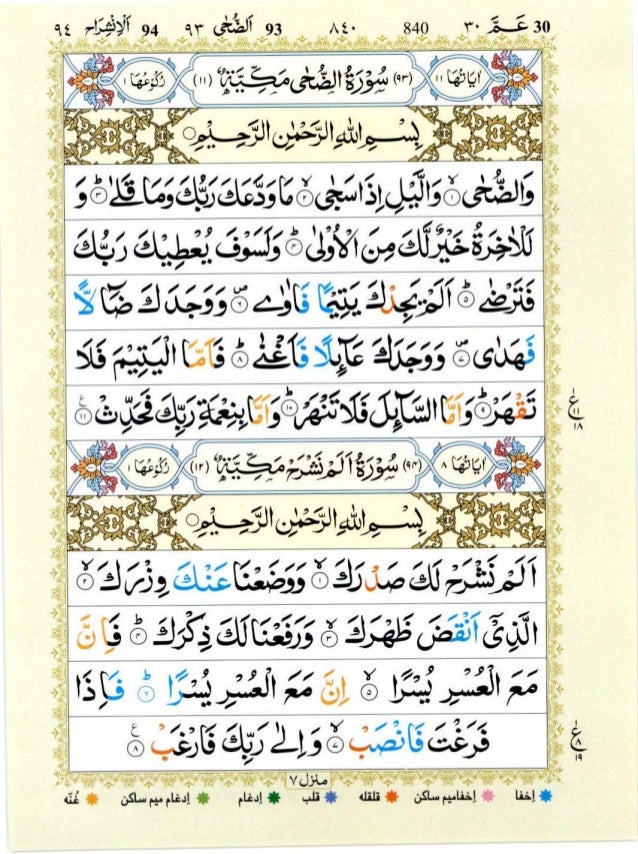 30 عَمَّ ٣٠ 840 ٨٤٠ 93 اَلضُّحٰى ٩٣ 94 اَلْاِنْشِرَاح ٩٤
اٰيَاتُهَا ١١ (٩٣) سُوْرَةُ الضُّحٰى مَكِّيَّةٌ (١١) رُكُوْعُهَا ١
بِسْمِ اللّٰهِ الرَّحْمٰنِ الرَّحِيْمِ
وَالضُّحٰى ١ۙ وَالَّيْلِ اِذَا سَجٰى ٢ۙ مَا وَدَّعَكَ رَبُّكَ وَمَا قَلٰى ٣ؕ وَ
لَلْاٰخِرَةُ خَيْرٌ لَّكَ مِنَ الْاُوْلٰى ٤ؕ وَلَسَوْفَ يُعْطِيْكَ رَبُّكَ
فَتَرْضٰى ٥ؕ اَلَمْ يَجِدْكَ يَتِيْمًا فَاٰوٰى ٦۪ وَوَجَدَكَ ضَآلًّا
فَهَدٰى ٧۪ وَوَجَدَكَ عَآىِٕلًا فَاَغْنٰى ٨ؕ فَاَمَّا الْيَتِيْمَ فَلَا
تَقْهَرْ ٩ؕ وَاَمَّا السَّآىِٕلَ فَلَا تَنْهَرْ ١٠ؕ وَاَمَّا بِنِعْمَةِ رَبِّكَ فَحَدِّثْ ١١ ع
ع ١١ ١٨
اٰيَاتُهَا ٨ (٩٤) سُوْرَةُ اَلَمْ نَشْرَحْ مَكِّيَّةٌ (١٢) رُكُوْعُهَا ١
بِسْمِ اللّٰهِ الرَّحْمٰنِ الرَّحِيْمِ
اَلَمْ نَشْرَحْ لَكَ صَدْرَكَ ١ۙ وَوَضَعْنَا عَنْكَ وِزْرَكَ ٢ۙ
الَّذِيْۤ اَنْقَضَ ظَهْرَكَ ٣ۙ وَرَفَعْنَا لَكَ ذِكْرَكَ ٤ؕ فَاِنَّ
مَعَ الْعُسْرِ يُسْرًا ٥ۙ اِنَّ مَعَ الْعُسْرِ يُسْرًا ٦ؕ فَاِذَا
فَرَغْتَ فَانْصَبْ ٧ۙ وَاِلٰى رَبِّكَ فَارْغَبْ ٨ ع
ع ٨ ١٩
منزل ٧
اِخفا اِخفامیم ساکن قلقله قلب اِدغام اِدغام میم ساکن غُنّه